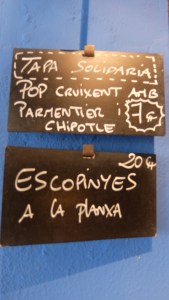 TAPA SOLIDARIA
POP CRUIXENT AMB
PARMENTIER I
CHIPOTLE
7€
20€
ESCOPINYES
A LA PLANXA